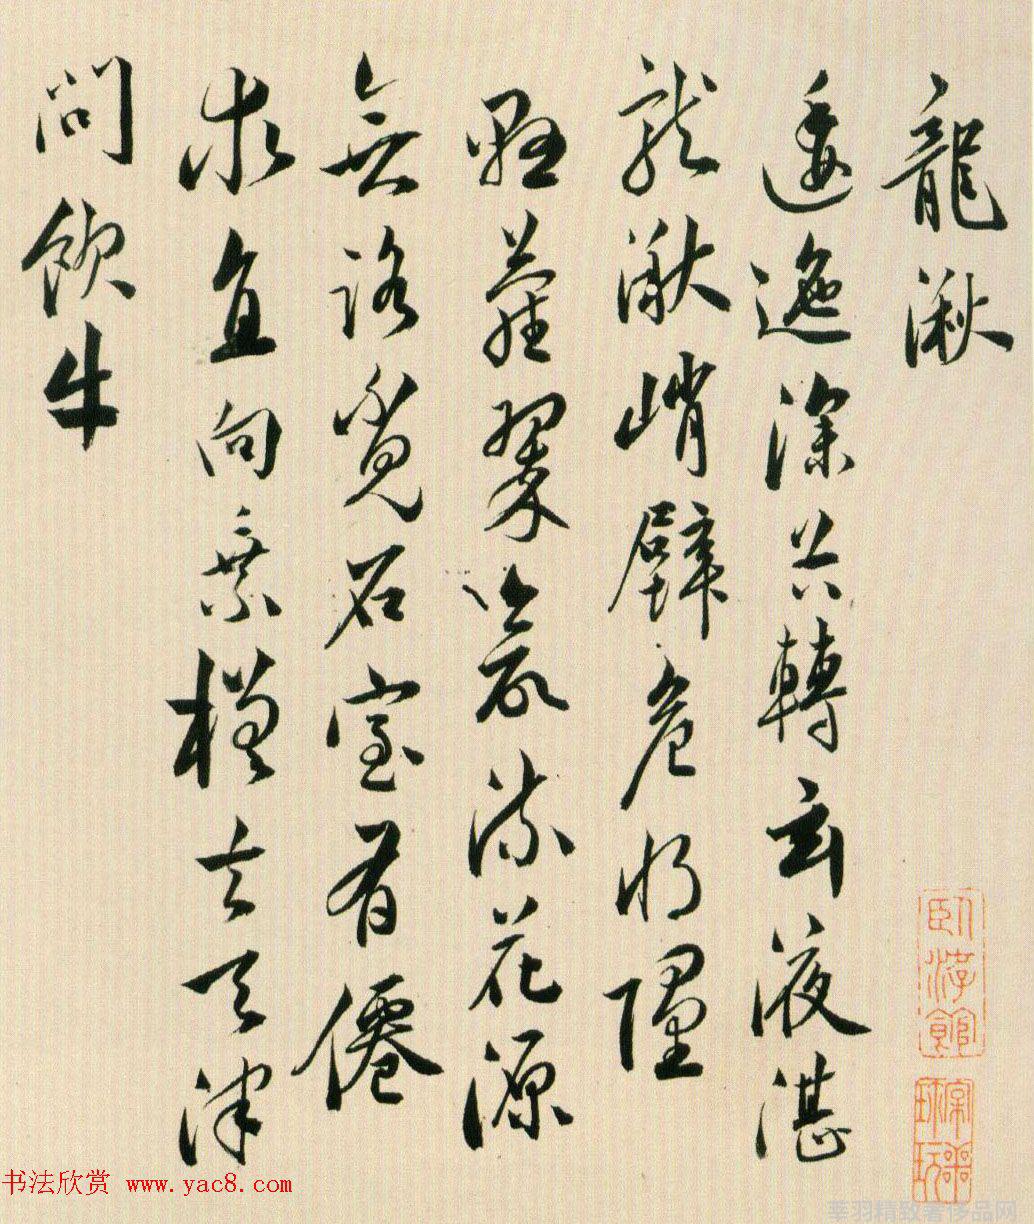 龍湫
逶迤深谷轉玄液湛
龍湫峭壁危將墮
懸蘿翠欲流花源
無路覓石室有僊
求直向乘槎去天津
問飲牛
书法欣赏 www.yac8.com